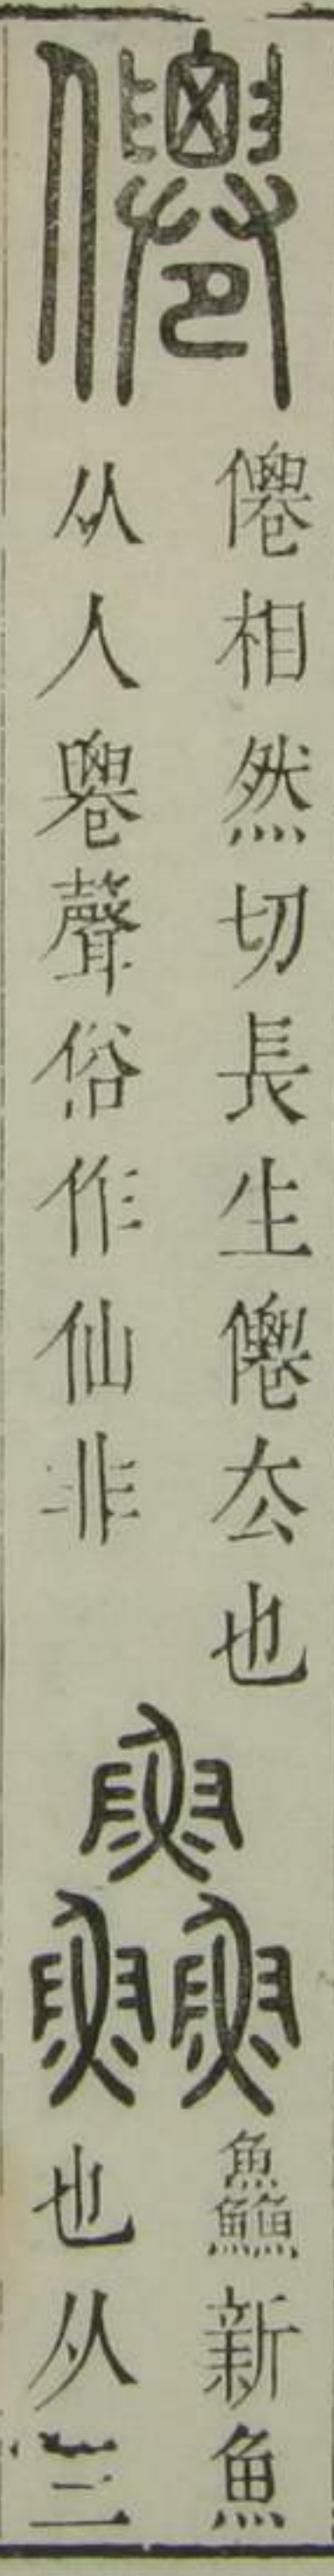 僊
僊相然切長生僊厺也
从人䙴聲俗作仙非
鱻
鱻新魚
也从三